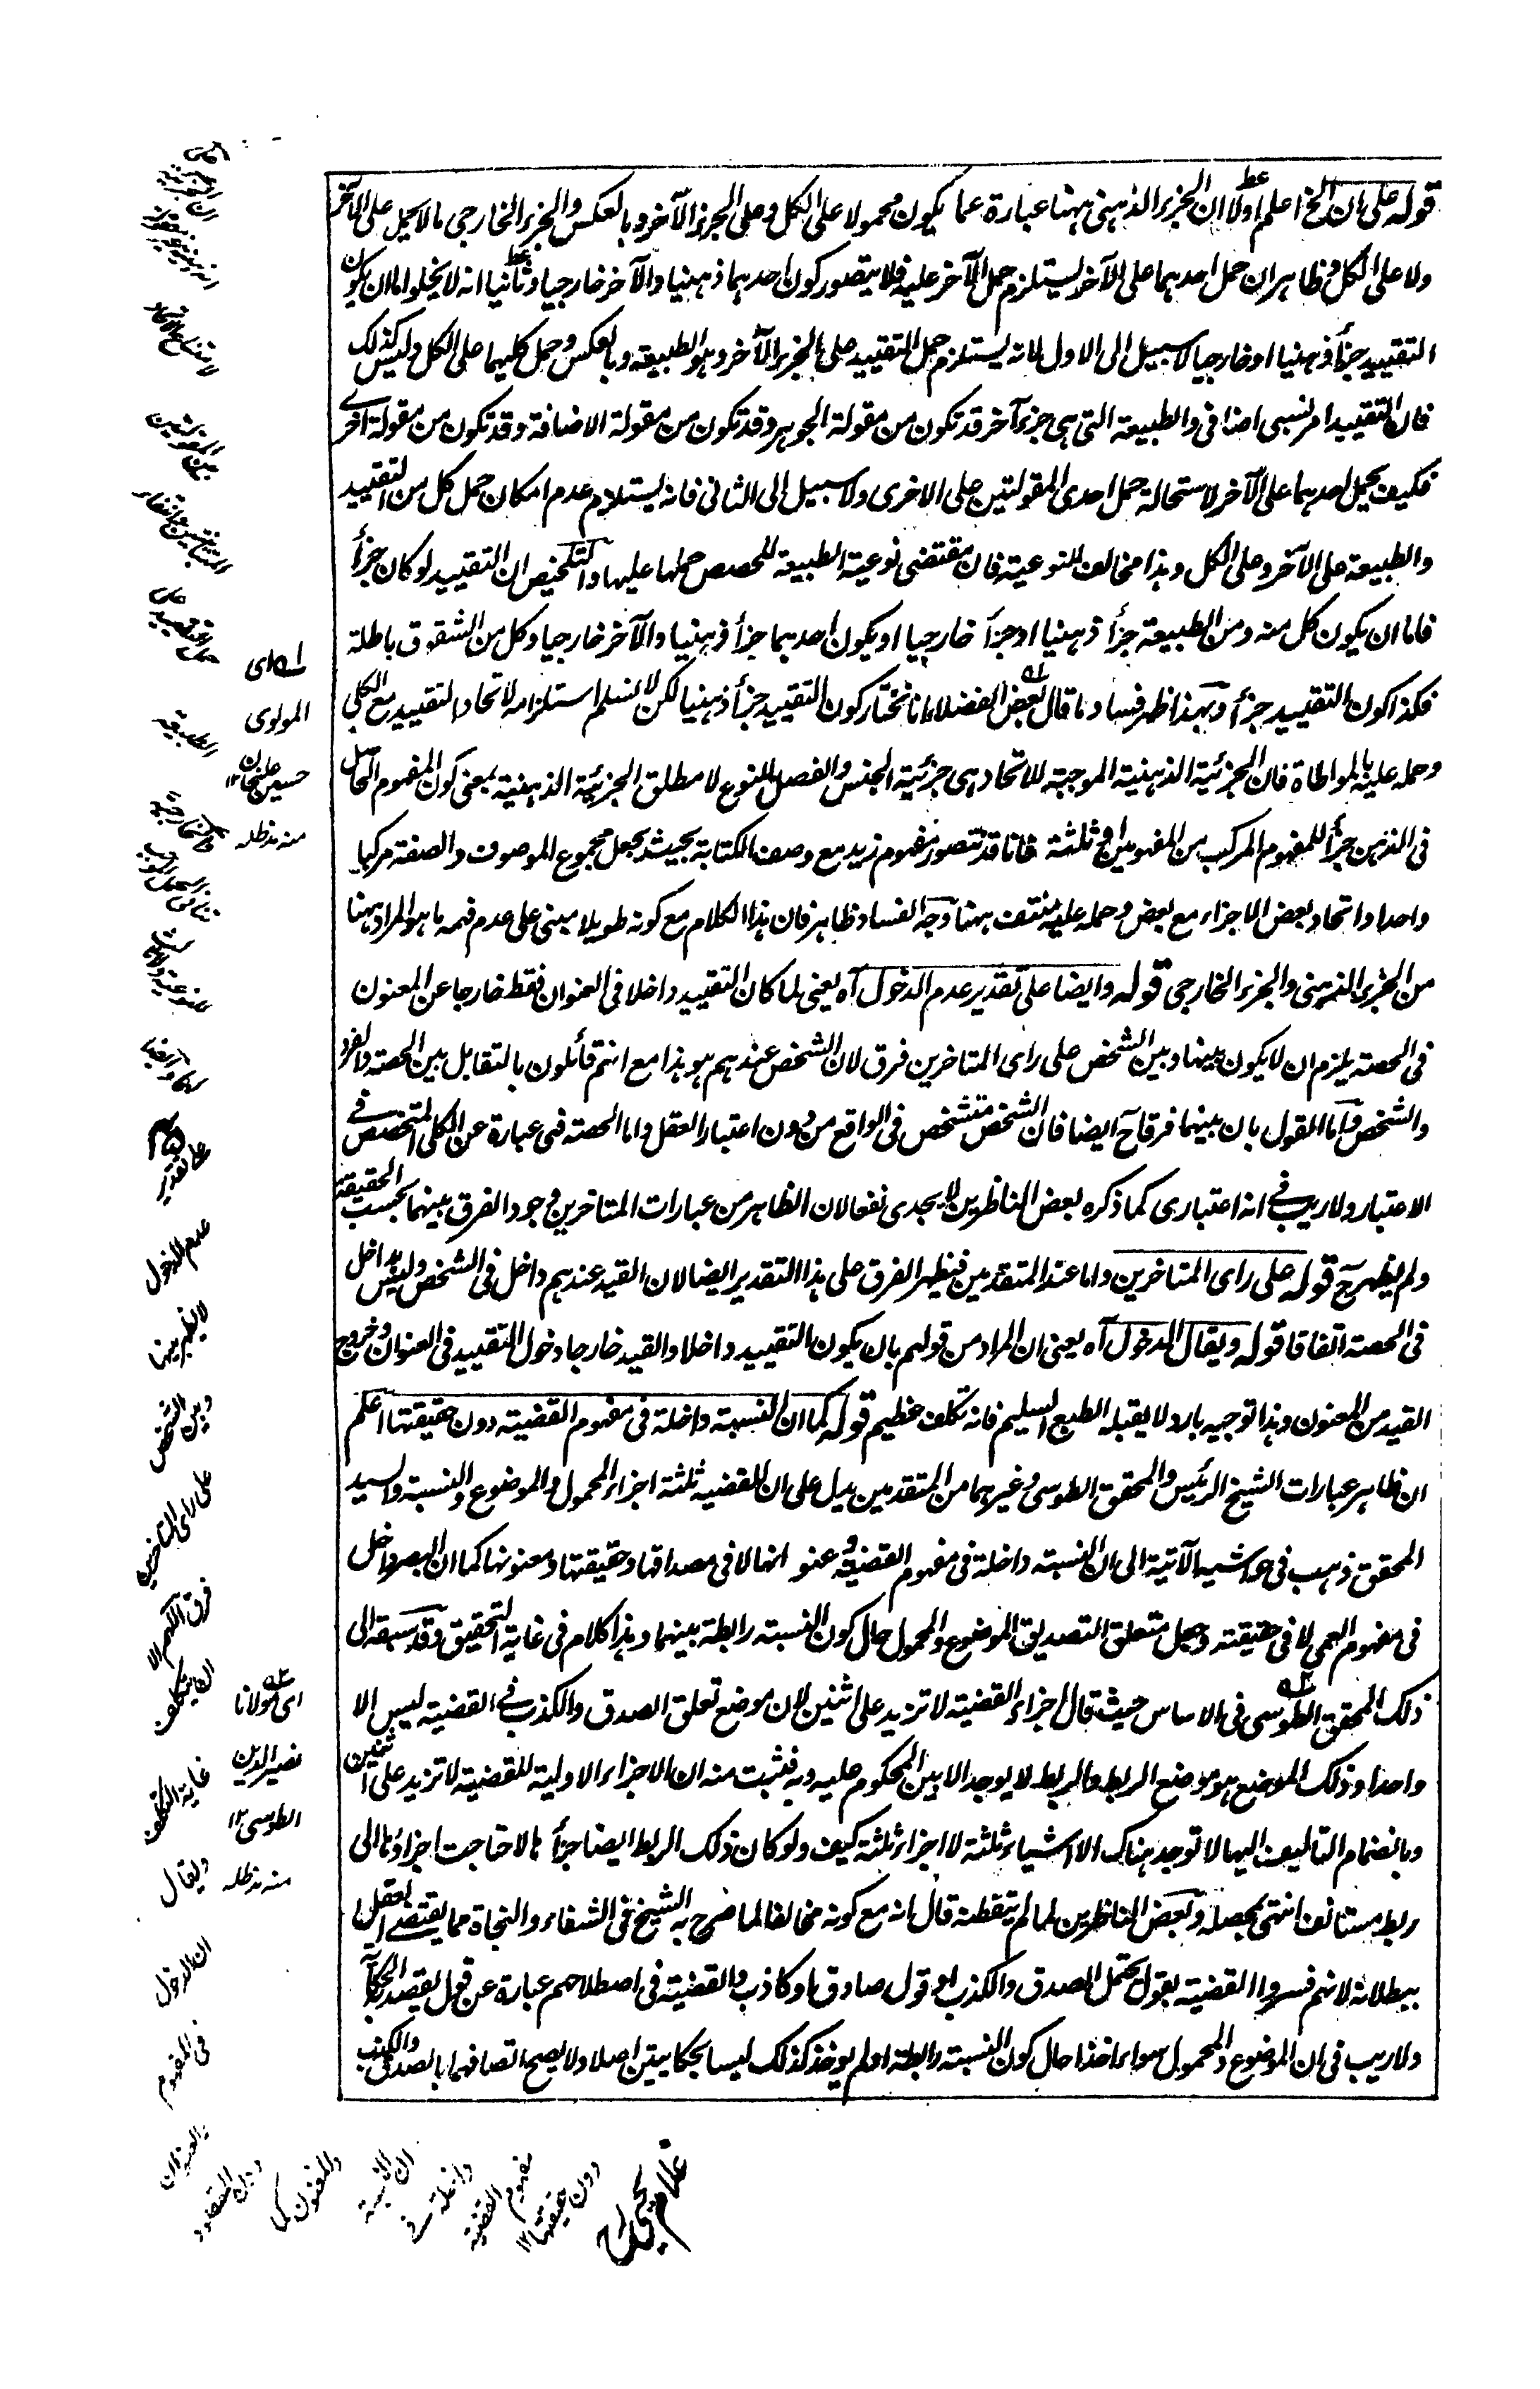 قوله على ان الخ اعلم اولا ان الجزء الذهنى ههنا عبارة عما يكون محمولا على الكل وعلى الجزء الآخر وبالعكس والجزء الخارجى ما لا يحمل على الآخر
ولا على الكل وظاهر ان حمل احدهما على الآخر يستلزم حمل الآخر عليه فلا يتصور كون احدهما ذهنيا والآخر خارجيا وثانيا انه لا يخلو اما ان يكون
التقييد جزأ ذهنيا او خارجيا لا سبيل الى الاول لانه يستلزم حمل التقييد على الجزء الآخر وهو الطبيعة وبالعكس وحمل كليهما على الكل وليس كذلك
فان التقييد امر نسبى اضافى والطبيعة التى هى جزء آخر قد تكون من مقولة الجوهر وقد تكون من مقولة الاضافة وقد تكون من مقولة اخرى
فكيف يحمل احدهما على الآخر لاستحالة حمل احدى المقولتين على الاخرى ولا سبيل الى الثانى فانه يستلزم عدم امكان حمل كل من التقييد
والطبيعة على الآخر وعلى الكل وهذا مخالف للنوعية فان مقتضى نوعية الطبيعة للحصص حملها عليها والتلخيص ان التقييد لو كان جزأ
فاما ان يكون كل منه ومن الطبيعة جزأ ذهنيا او جزأ خارجيا او يكون احدهما جزأ ذهنيا والآخر خارجيا وكل من الشقوق باطلة
فكذا كون التقييد جزأ وبهذا ظهر فساد ما قال بعض الفضلاء انا نختار كون التقييد جزأ ذهنيا لكن لا نسلم استلزامه لاتحاد التقييد مع الكلى
وحمله عليه بالمواطاة فان الجزئية الذهنية الموجبة للاتحاد هى جزئية الجنس والفصل للنوع لا مطلق الجزئية الذهنية بمعنى كون المفهوم الحاصل
فى الذهن جزأ للمفهوم المركب من المفهومين او ثلثة فانا قد نتصور مفهوم زيد مع وصف الكتابة بحيث يجعل مجموع الموصوف والصفة مركبا
واحدا واتحاد بعض الاجزاء مع بعض وحمله عليه منتف ههنا وجه الفساد ظاهر فان هذا الكلام مع كونه طويلا مبنى على عدم فهمه ما هو المراد ههنا
من الجزء الذهنى والجزء الخارجى قوله وايضا على تقدير عدم الدخول آه يعنى لما كان التقييد داخلا فى العنوان فقط خارجا عن المعنون
فى الحصة يلزم ان لا يكون بينها وبين الشخص على راى المتاخرين فرق لان الشخص عندهم هو هذا مع انتم قائلون بالتقابل بين الحصة والفرد
والشخص واما القول بان بينهما فرقا ح ايضا فان الشخص متشخص فى الواقع من دون اعتبار العقل واما الحصة فهى عبارة عن الكلى المتخصص فى
الاعتبار ولا ريب فى انه اعتبارى كما ذكره بعض الناظرين لا يجدى نفعا لان الظاهر من عبارات المتاخرين وجود الفرق بينهما بحسب الحقيقة
ولم يظهر ح قوله على راى المتاخرين واما عند المتقدمين فيظهر الفرق على هذا التقدير ايضا لان القيد عندهم داخل فى الشخص وليس بداخل
فى الحصة اتفاقا قوله ويقال الدخول آه يعنى ان المراد من قولهم بان يكون التقييد داخلا والقيد خارجا دخول التقييد فى العنوان وخروج
القيد من المعنون وهذا توجيه بارد لا يقبله الطبع السليم فانه تكلف عظيم قوله كما ان النسبة داخلة فى مفهوم القضية دون حقيقتها اعلم
ان ظاهر عبارات الشيخ الرئيس والمحقق الطوسى وغيرهما من المتقدمين يدل على ان للقضية ثلثة اجزاء المحمول والموضوع والنسبة والسيد
المحقق ذهب فى حواشيه الآتية الى ان النسبة داخلة فى مفهوم القضية وعنوانها لا فى مصداقها وحقيقتها ومعنونها كما ان البصر داخل
فى مفهوم العمى لا فى حقيقته وجعل متعلق التصديق الموضوع والمحمول حال كون النسبة رابطة بينهما وهذا كلام فى غاية التحقيق وقد سبقه الى
ذلك المحقق الطوسى فى الاساس حيث قال اجزاء القضية لا تزيد على اثنين لان موضع تعلق الصدق والكذب فى القضية ليس الا
واحدا وذلك الموضع هو موضع الربط والربط لا يوجد الا بين المحكوم عليه وبه فثبت منه ان الاجزاء الاولية للقضية لا تزيد على اثنين
وبانضمام التاليف اليها لا توجد هناك الا اشياء ثلثة لا اجزاء ثلثة كيف ولو كان ذلك الربط ايضا جزأ لاحتاجت اجزاؤها الى
ربط مستانف انتهى بمحصله وبعض الناظرين لما لم يتفطنه قال انه مع كونه مخالفا لما صرح به الشيخ فى الشفاء والنجاة مما يقتضى العقل
ببطلانه لانهم فسروا القضية بقول يحتمل الصدق والكذب او قول صادق او كاذب والقضية فى اصطلاحهم عبارة عن قول يقصد به الحكاية
ولا ريب فى ان الموضوع والمحمول سواء اخذا حال كون النسبة رابطة او لم يوخذ كذلك ليسا بحكايتين اصلا ولا يصح اتصافهما بالصدق والكذب
له اى
المولوى
حسين عليخان ١٢
منه مد ظله
اى مولانا
نصير الدين
الطوسى ١٢
منه مد ظله
على تقدير
عدم الدخول
لا يظهر بينها
وبين الشخص
على راى المتاخرين
فرق اللهم الا
ان يتكلف
غاية التكلف
ويقال
ان الدخول
فى المفهوم
والعنوان
ان النسبة
داخلة فى
مفهوم القضية
دون حقيقتها ١٢